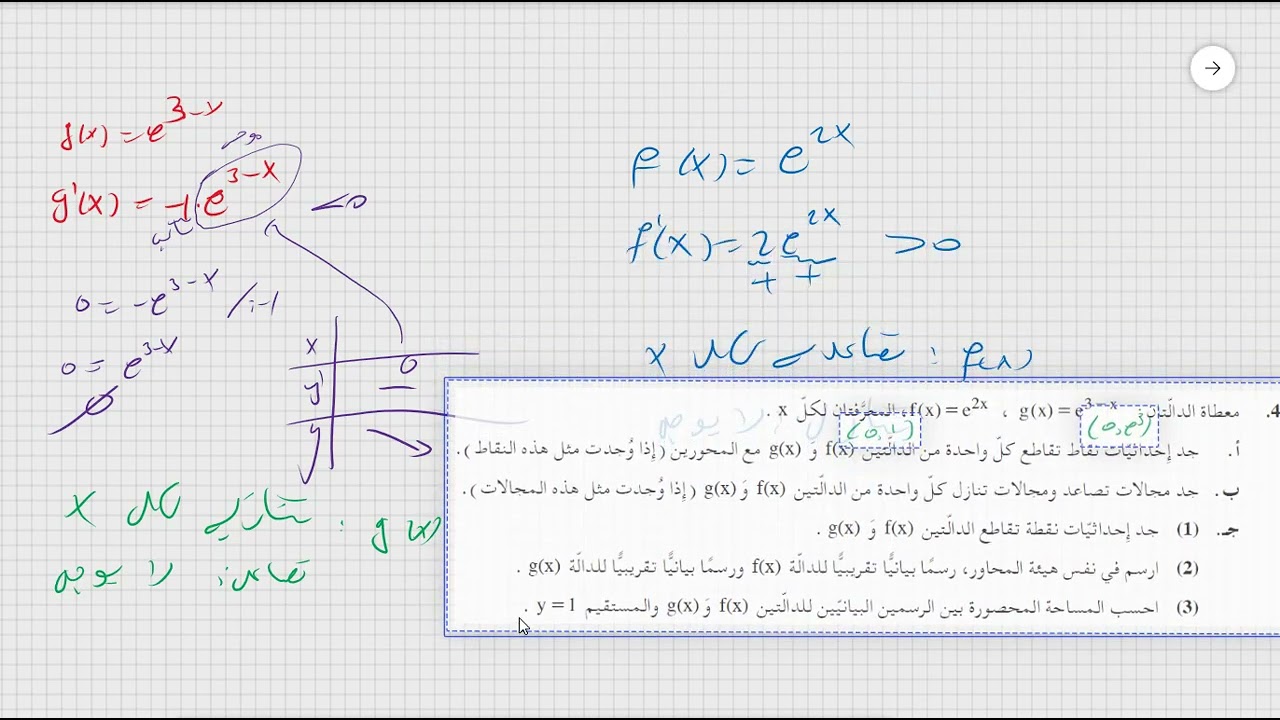 f(x) = e^{3-x}
g'(x) = -1·e^{3-x} <0
سالب
0 = -e^{3-x} /:-1
0 = e^{3-x}
x 0
y' —
y
g(x) : تنازلي لكل x
تصاعد: لا يوجد
f(x) = e^{2x}
f'(x) = 2e^{2x} >0
+ +
f(x) : تصاعدي لكل x
لا يوجد
4. معطاة الدالّتين f(x) = e^{2x} ، g(x) = e^{3-x}، المعرَّفتان لكلّ x .
(0,1) (0,e³)
أ. جد إحداثيّات نقاط تقاطع كلّ واحدة من الدالّتين f(x) وَ g(x) مع المحورين (إذا وُجدت مثل هذه النقاط).
ب. جد مجالات تصاعد ومجالات تنازل كلّ واحدة من الدالّتين f(x) وَ g(x) (إذا وُجدت مثل هذه المجالات).
جـ. (1) جد إحداثيّات نقطة تقاطع الدالّتين f(x) وَ g(x) .
(2) ارسم في نفس هيئة المحاور، رسمًا بيانيًّا تقريبيًّا للدالّة f(x) ورسمًا بيانيًّا تقريبيًّا للدالّة g(x) .
(3) احسب المساحة المحصورة بين الرسمين البيانيّين للدالّتين f(x) وَ g(x) والمستقيم y = 1 .